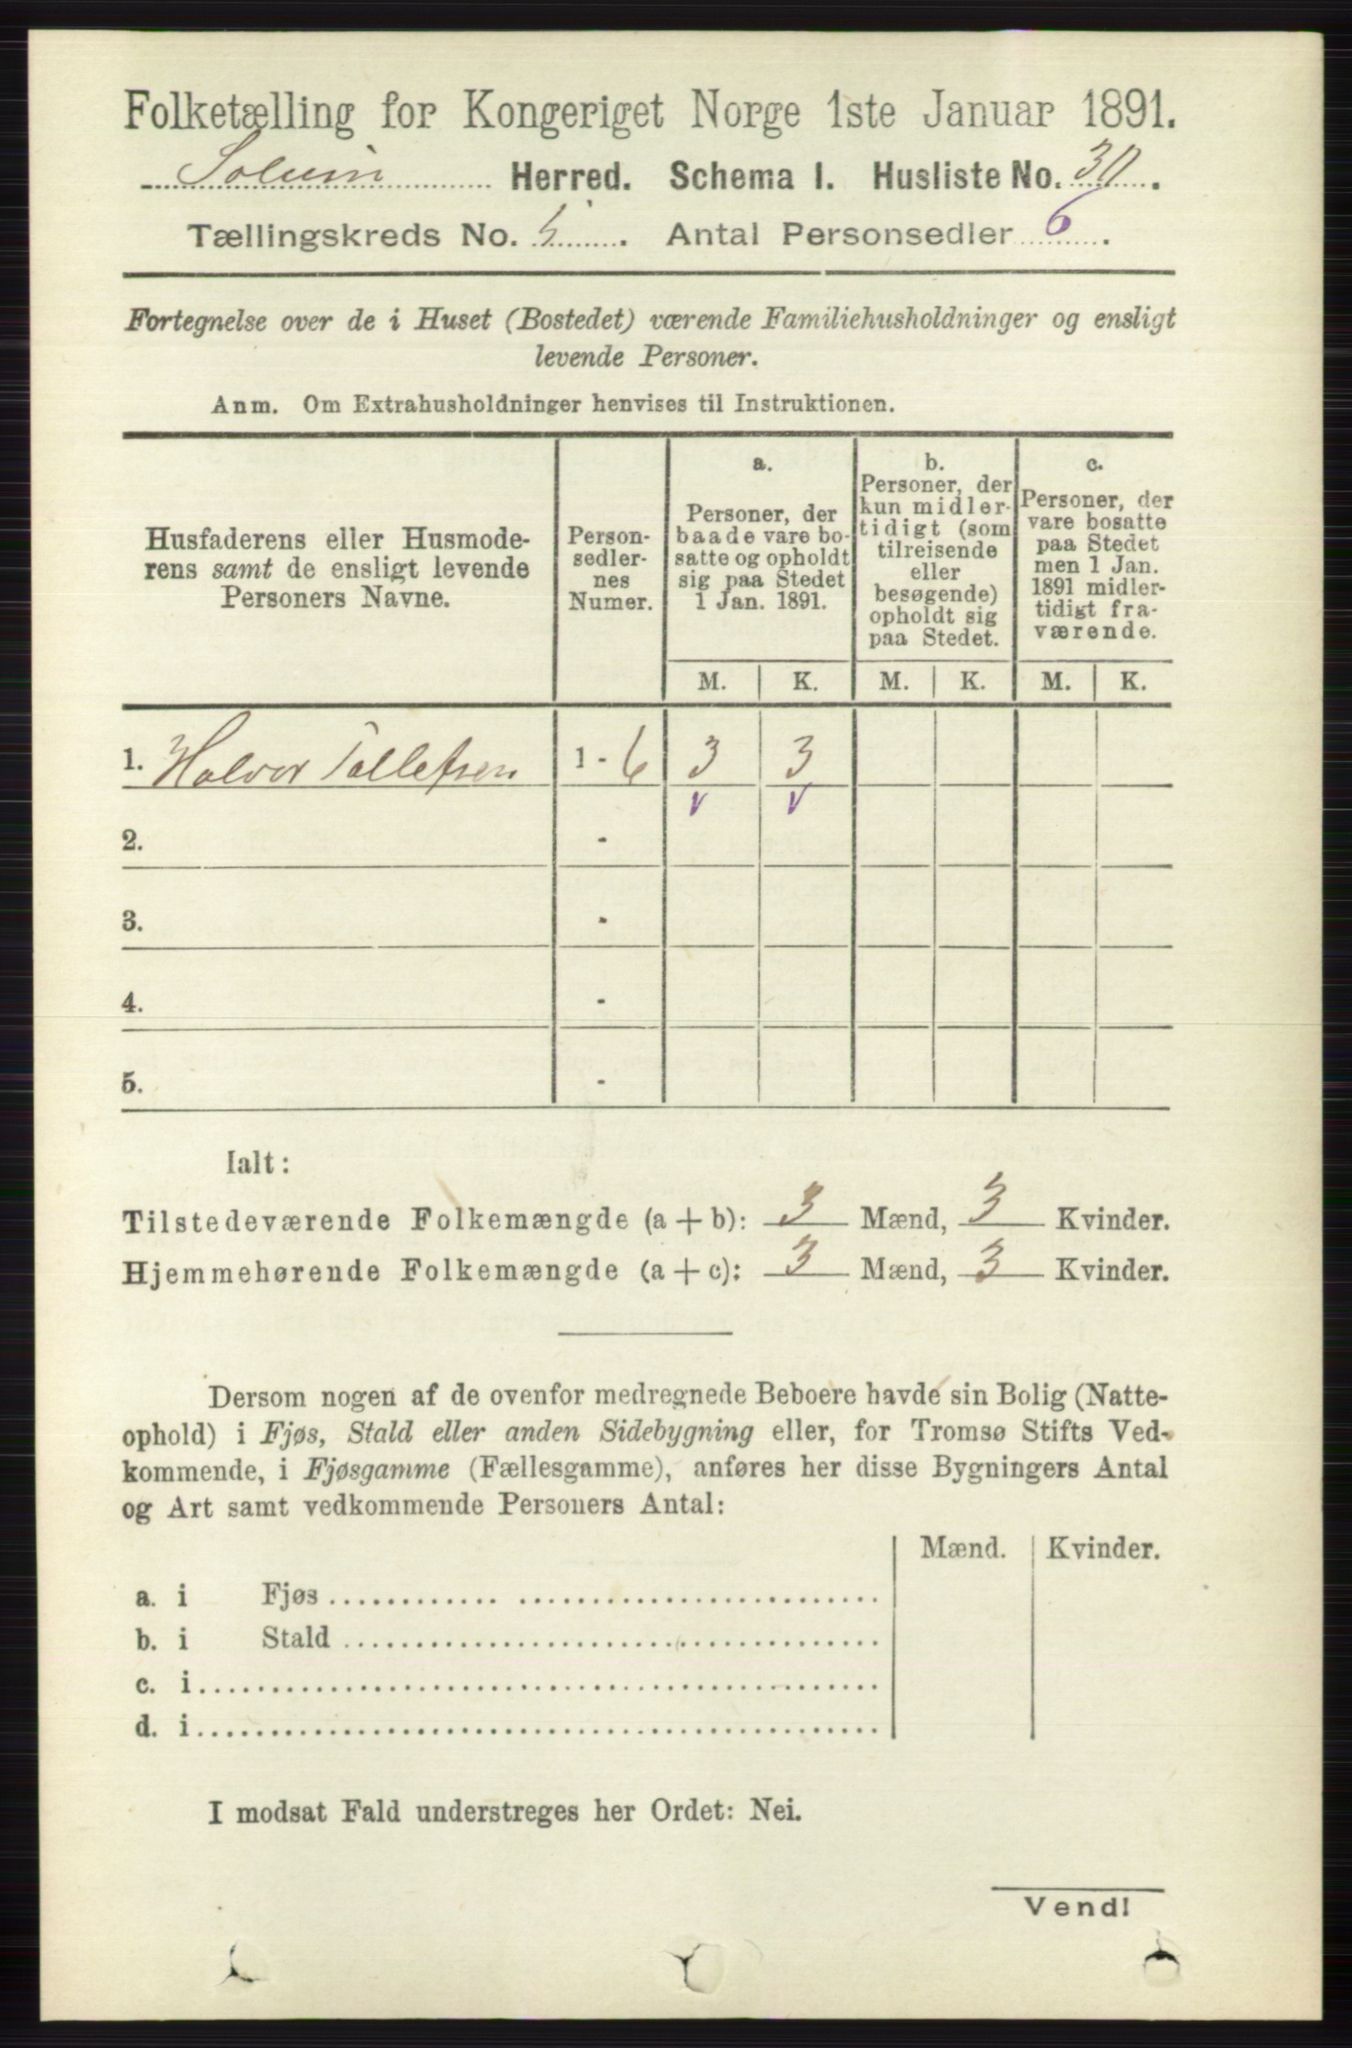 Folketælling for Kongeriget Norge 1ste Januar 1891.
Solum Herred. Schema I. Husliste No. 30.
Tællingskreds No. 5. Antal Personsedler 6.
Fortegnelse over de i Huset (Bostedet) værende Familiehusholdninger og ensligt
levende Personer.
Anm. Om Extrahusholdninger henvises til Instruktionen.
Husfaderens eller Husmode-
rens samt de ensligt levende
Personers Navne.
Person-
sedler-
nes
Numer.
a.
Personer, der
baade vare bo-
satte og opholdt
sig paa Stedet
1 Jan. 1891.
b.
Personer, der
kun midler-
tidigt (som
tilreisende
eller
besøgende)
opholdt sig
paa Stedet.
c.
Personer, der
vare bosatte
paa Stedet
men 1 Jan.
1891 midler-
tidigt fra-
værende.
M. K. M. K. M. K.
1. Halvor Tollefsen 1 - 6 3 3
v v
2. -
3. -
4. -
5. -
Ialt:
Tilstedeværende Folkemængde (a + b): 3 Mænd, 3 Kvinder.
Hjemmehørende Folkemængde (a + c): 3 Mænd, 3 Kvinder.
Dersom nogen af de ovenfor medregnede Beboere havde sin Bolig (Natte-
ophold) i Fjøs, Stald eller anden Sidebygning eller, for Tromsø Stifts Ved-
kommende, i Fjøsgamme (Fællesgamme), anføres her disse Bygningers Antal
og Art samt vedkommende Personers Antal:
Mænd. Kvinder.
a. i Fjøs
b. i Stald
c. i
d. i
I modsat Fald understreges her Ordet: Nei.
Vend!